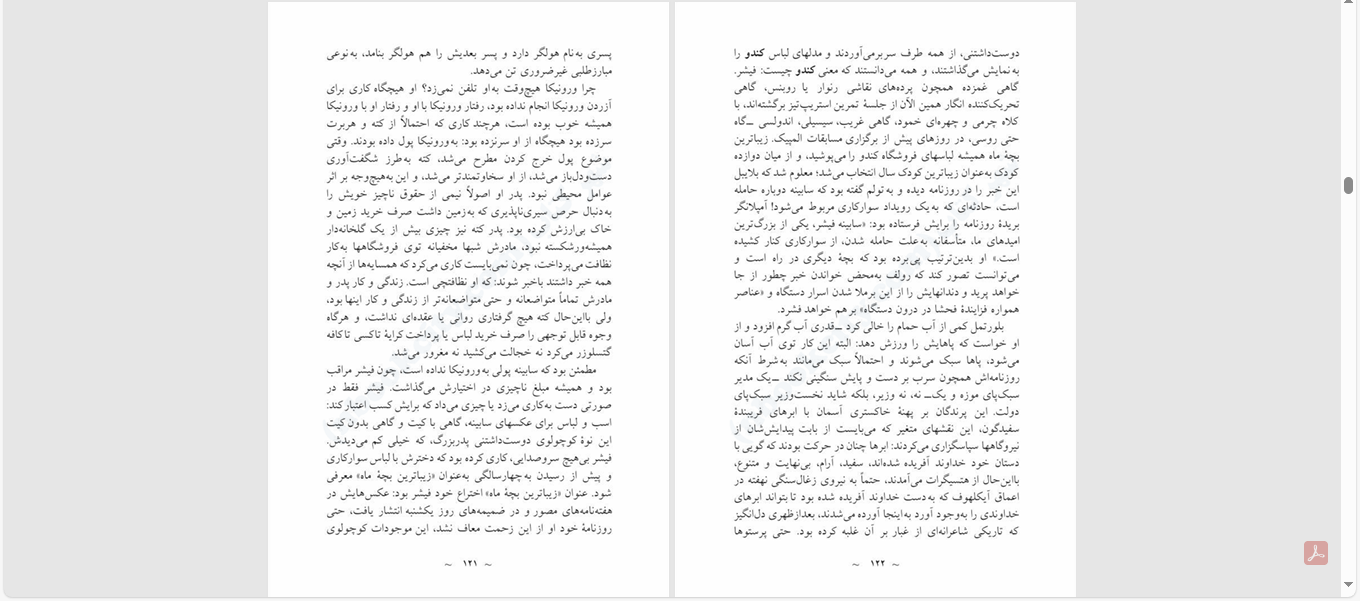 پسری به‌نام هولگر دارد و پسر بعدیش را هم هولگر بنامد، به‌نوعی
مبارزطلبی غیرضروری تن می‌دهد.
چرا ورونیکا هیچ‌وقت به‌او تلفن نمی‌زد؟ او هیچگاه کاری برای
آزردن ورونیکا انجام نداده بود، رفتار ورونیکا با او و رفتار او با ورونیکا
همیشه خوب بوده است، هرچند کاری که احتمالاً از کته و هربرت
سرزده بود هیچگاه از او سرنزده بود: به‌ورونیکا پول داده بودند. وقتی
موضوع پول خرج کردن مطرح می‌شد، کته به‌طرز شگفت‌آوری
دست‌ودل‌باز می‌شد، از او سخاوتمندتر می‌شد، و این به‌هیچ‌وجه بر اثر
عوامل محیطی نبود. پدر او اصولاً نیمی از حقوق ناچیز خویش را
به‌دنبال حرص سیری‌ناپذیری که به‌زمین داشت صرف خرید زمین و
خاک بی‌ارزش کرده بود. پدر کته نیز چیزی بیش از یک گلخانه‌دار
همیشه‌ورشکسته نبود، مادرش شبها مخفیانه توی فروشگاهها به‌کار
نظافت می‌پرداخت، چون نمی‌بایست کاری می‌کرد که همسایه‌ها از آنچه
همه خبر داشتند باخبر شوند: که او نظافتچی است. زندگی و کار پدر و
مادرش تماماً متواضعانه و حتی متواضعانه‌تر از زندگی و کار اینها بود،
ولی بااین‌حال کته هیچ گرفتاری روانی یا عقده‌ای نداشت، و هرگاه
وجوه قابل توجهی را صرف خرید لباس یا پرداخت کرایهٔ تاکسی تاکافه
گتسلوزر می‌کرد نه خجالت می‌کشید نه مغرور می‌شد.
مطمئن بود که سابینه پولی به‌ورونیکا نداده است، چون فیشر مراقب
بود و همیشه مبلغ ناچیزی در اختیارش می‌گذاشت. فیشر فقط در
صورتی دست به‌کاری می‌زد یا چیزی می‌داد که برایش کسب اعتبار کند:
اسب و لباس برای عکسهای سابینه، گاهی با کیت و گاهی بدون کیت
این نوهٔ کوچولوی دوست‌داشتنی پدربزرگ، که خیلی کم می‌دیدش.
فیشر بی‌هیچ سروصدایی، کاری کرده بود که دخترش با لباس سوارکاری
و پیش از رسیدن به‌چهارسالگی به‌عنوان «زیباترین بچهٔ ماه» معرفی
شود. عنوان «زیباترین بچهٔ ماه» اختراع خود فیشر بود: عکس‌هایش در
هفته‌نامه‌های مصور و در ضمیمه‌های روز یکشنبه انتشار یافت، حتی
روزنامهٔ خود او از این زحمت معاف نشد، این موجودات کوچولوی
~ ۱۲۱ ~
دوست‌داشتنی، از همه طرف سربرمی‌آوردند و مدلهای لباس کندو را
به‌نمایش می‌گذاشتند، و همه می‌دانستند که معنی کندو چیست: فیشر.
گاهی غمزده همچون پرده‌های نقاشی رنوار یا روبنس، گاهی
تحریک‌کننده انگار همین الآن از جلسهٔ تمرین استریپ‌تیز برگشته‌اند، با
کلاه چرمی و چهره‌ای خمود، گاهی غریب، سیسیلی، اندولسی ــگاه
حتی روسی، در روزهای پیش از برگزاری مسابقات المپیک. زیباترین
بچهٔ ماه همیشه لباسهای فروشگاه کندو را می‌پوشید، و از میان دوازده
کودک به‌عنوان زیباترین کودک سال انتخاب می‌شد؛ معلوم شد که بلایبل
این خبر را در روزنامه دیده و به‌تولم گفته بود که سابینه دوباره حامله
است، حادثه‌ای که به‌یک رویداد سوارکاری مربوط می‌شود! آمپلانگر
بریدهٔ روزنامه را برایش فرستاده بود: «سابینه فیشر، یکی از بزرگ‌ترین
امیدهای ما، متأسفانه به‌علت حامله شدن، از سوارکاری کنار کشیده
است.» او بدین‌ترتیب پی‌برده بود که بچهٔ دیگری در راه است و
می‌توانست تصور کند که رولف به‌محض خواندن خبر چطور از جا
خواهد پرید و دندانهایش را از این برملا شدن اسرار دستگاه و «عناصر
همواره فزایندهٔ فحشا در درون دستگاه» برهم خواهد فشرد.
بلورتمل کمی از آب حمام را خالی کرد ــقدری آب گرم افزود و از
او خواست که پاهایش را ورزش دهد: البته این کار توی آب آسان
می‌شود، پاها سبک می‌شوند و احتمالاً سبک می‌مانند به‌شرط آنکه
روزنامه‌اش همچون سرب بر دست و پایش سنگینی نکند ــیک مدیر
سبک‌پای موزه و یک‌ــ نه، نه وزیر، بلکه شاید نخست‌وزیر سبک‌پای
دولت. این پرندگان بر پهنهٔ خاکستری آسمان با ابرهای فریبندهٔ
سفیدگون، این نقشهای متغیر که می‌بایست از بابت پیدایش‌شان از
نیروگاهها سپاسگزاری می‌کردند: ابرها چنان در حرکت بودند که گویی با
دستان خود خداوند آفریده شده‌اند، سفید، آرام، بی‌نهایت و متنوع،
بااین‌حال از هتسیگرات می‌آمدند، حتماً به نیروی زغال‌سنگی نهفته در
اعماق آیکلهوف که به‌دست خداوند آفریده شده بود تا بتواند ابرهای
خداوندی را به‌وجود آورد به‌اینجا آورده می‌شدند، بعدازظهری دل‌انگیز
که تاریکی شاعرانه‌ای از غبار بر آن غلبه کرده بود. حتی پرستوها
~ ۱۲۲ ~